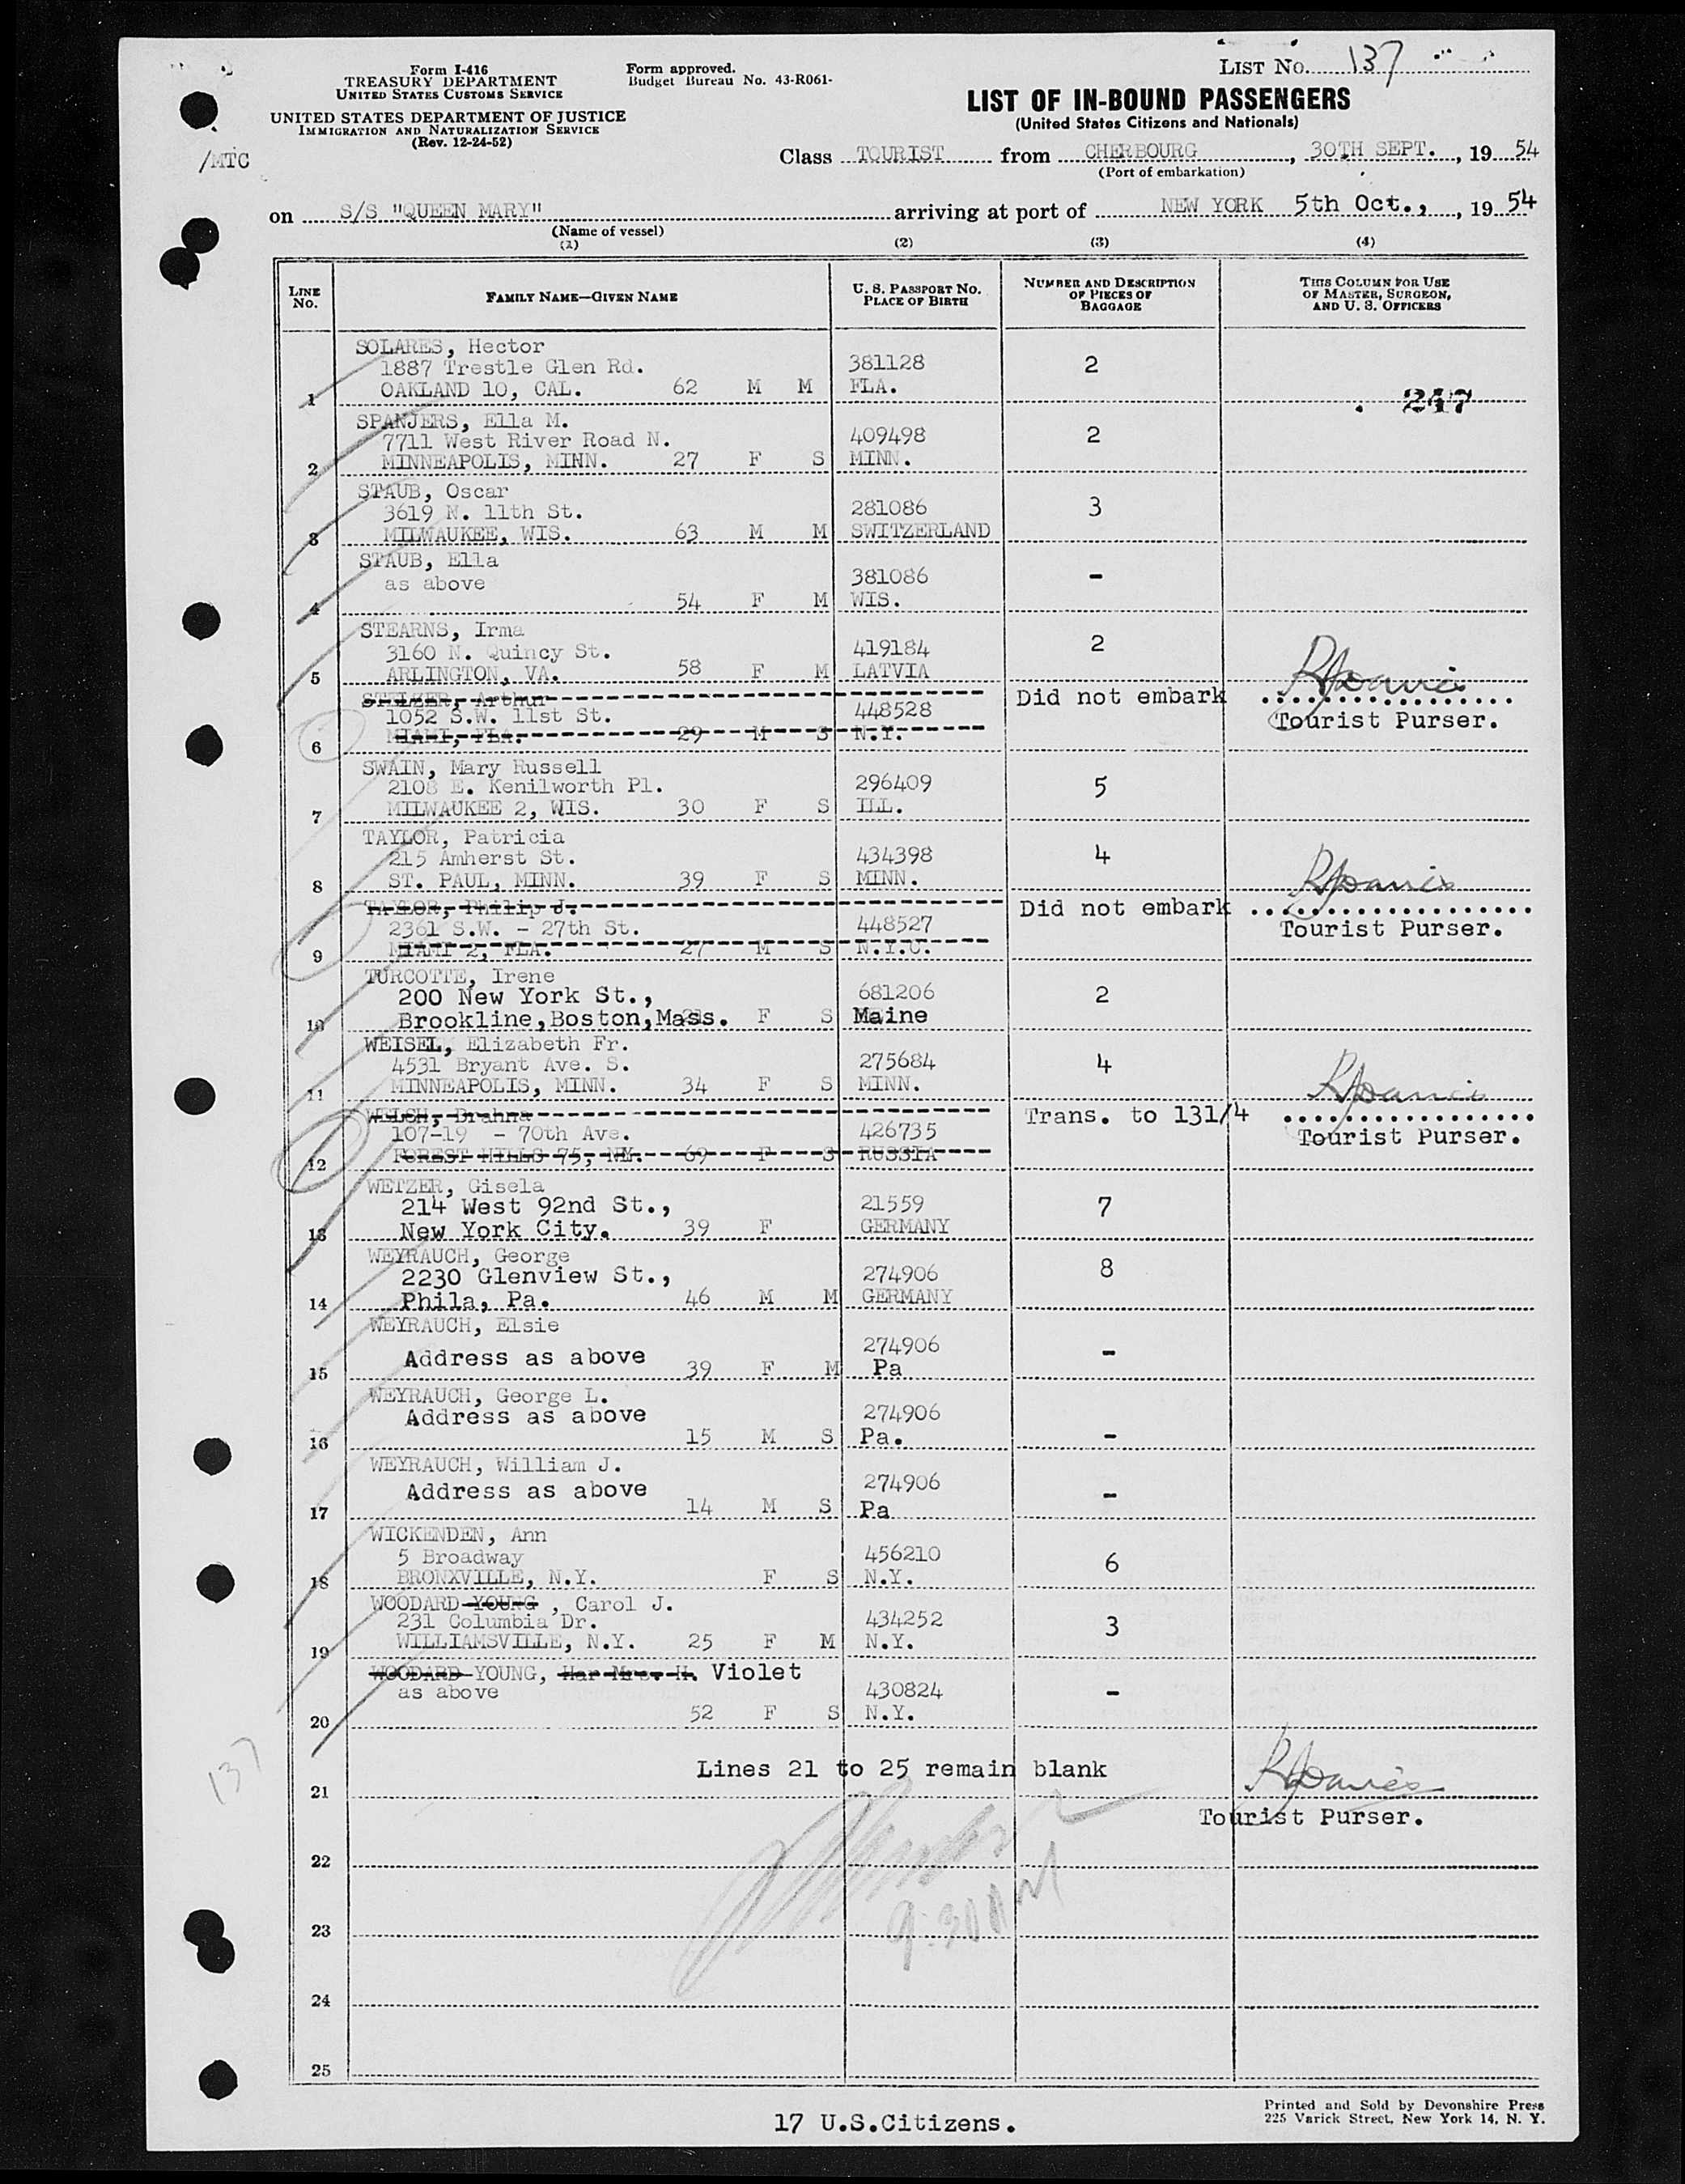 LIST No. 137
Form I-416
TREASURY DEPARTMENT
UNITED STATES CUSTOMS SERVICE
Form approved.
Budget Bureau No. 43-R061-
UNITED STATES DEPARTMENT OF JUSTICE
IMMIGRATION AND NATURALIZATION SERVICE
(Rev. 12-24-52)
LIST OF IN-BOUND PASSENGERS
(United States Citizens and Nationals)
/MTC
Class TOURIST from CHERBOURG, 30TH SEPT., 19 54
(Port of embarkation)
on S/S "QUEEN MARY" arriving at port of NEW YORK 5th Oct., , 19 54
(Name of vessel)
(1) (2) (3) (4)
LINE No. FAMILY NAME—GIVEN NAME U. S. PASSPORT No. PLACE OF BIRTH NUMBER AND DESCRIPTION OF PIECES OF BAGGAGE THIS COLUMN FOR USE OF MASTER, SURGEON, AND U. S. OFFICERS
SOLARES, Hector
1887 Trestle Glen Rd. 381128 2
1 OAKLAND 10, CAL. 62 M M FLA.
. 247
SPANJERS, Ella M.
7711 West River Road N. 409498 2
2 MINNEAPOLIS, MINN. 27 F S MINN.
STAUB, Oscar
3619 N. 11th St. 281086 3
3 MILWAUKEE, WIS. 63 M M SWITZERLAND
STAUB, Ella
as above 381086 -
4 54 F M WIS.
STEARNS, Irma
3160 N. Quincy St. 419184 2
5 ARLINGTON, VA. 58 F M LATVIA
STELZER, Arthur Did not embark
1052 S.W. 11st St. 448528 Tourist Purser.
6 MIAMI, FLA. 29 M S N.Y.
SWAIN, Mary Russell
2108 E. Kenilworth Pl. 296409 5
7 MILWAUKEE 2, WIS. 30 F S ILL.
TAYLOR, Patricia
215 Amherst St. 434398 4
8 ST. PAUL, MINN. 39 F S MINN.
TAYLOR, Philip J. Did not embark
2361 S.W. - 27th St. 448527 Tourist Purser.
9 MIAMI 2, FLA. 27 M S N.Y.C.
TURCOTTE, Irene
200 New York St., 681206 2
10 Brookline,Boston,Mass. F S Maine
WEISEL, Elizabeth Fr.
4531 Bryant Ave. S. 275684 4
11 MINNEAPOLIS, MINN. 34 F S MINN.
WELCH, Drahna Trans. to 131/4
107-19 - 70th Ave. 426735 Tourist Purser.
12 FOREST HILLS 75, NY. 69 F S RUSSIA
WETZER, Gisela
214 West 92nd St., 21559 7
13 New York City. 39 F GERMANY
WEYRAUCH, George
2230 Glenview St., 274906 8
14 Phila, Pa. 46 M M GERMANY
WEYRAUCH, Elsie
Address as above 274906 -
15 39 F M Pa
WEYRAUCH, George L.
Address as above 274906 -
16 15 M S Pa.
WEYRAUCH, William J.
Address as above 274906 -
17 14 M S Pa
WICKENDEN, Ann
5 Broadway 456210 6
18 BRONXVILLE, N.Y. F S N.Y.
WOODARD YOUNG , Carol J.
231 Columbia Dr. 434252 3
19 WILLIAMSVILLE, N.Y. 25 F M N.Y.
WOODARD YOUNG, Har Mrs. H. Violet
as above 430824 -
20 52 F S N.Y.
137
Lines 21 to 25 remain blank
21
Tourist Purser.
22
9:30AM
23
24
25
17 U.S.Citizens.
Printed and Sold by Devonshire Press
225 Varick Street, New York 14, N. Y.